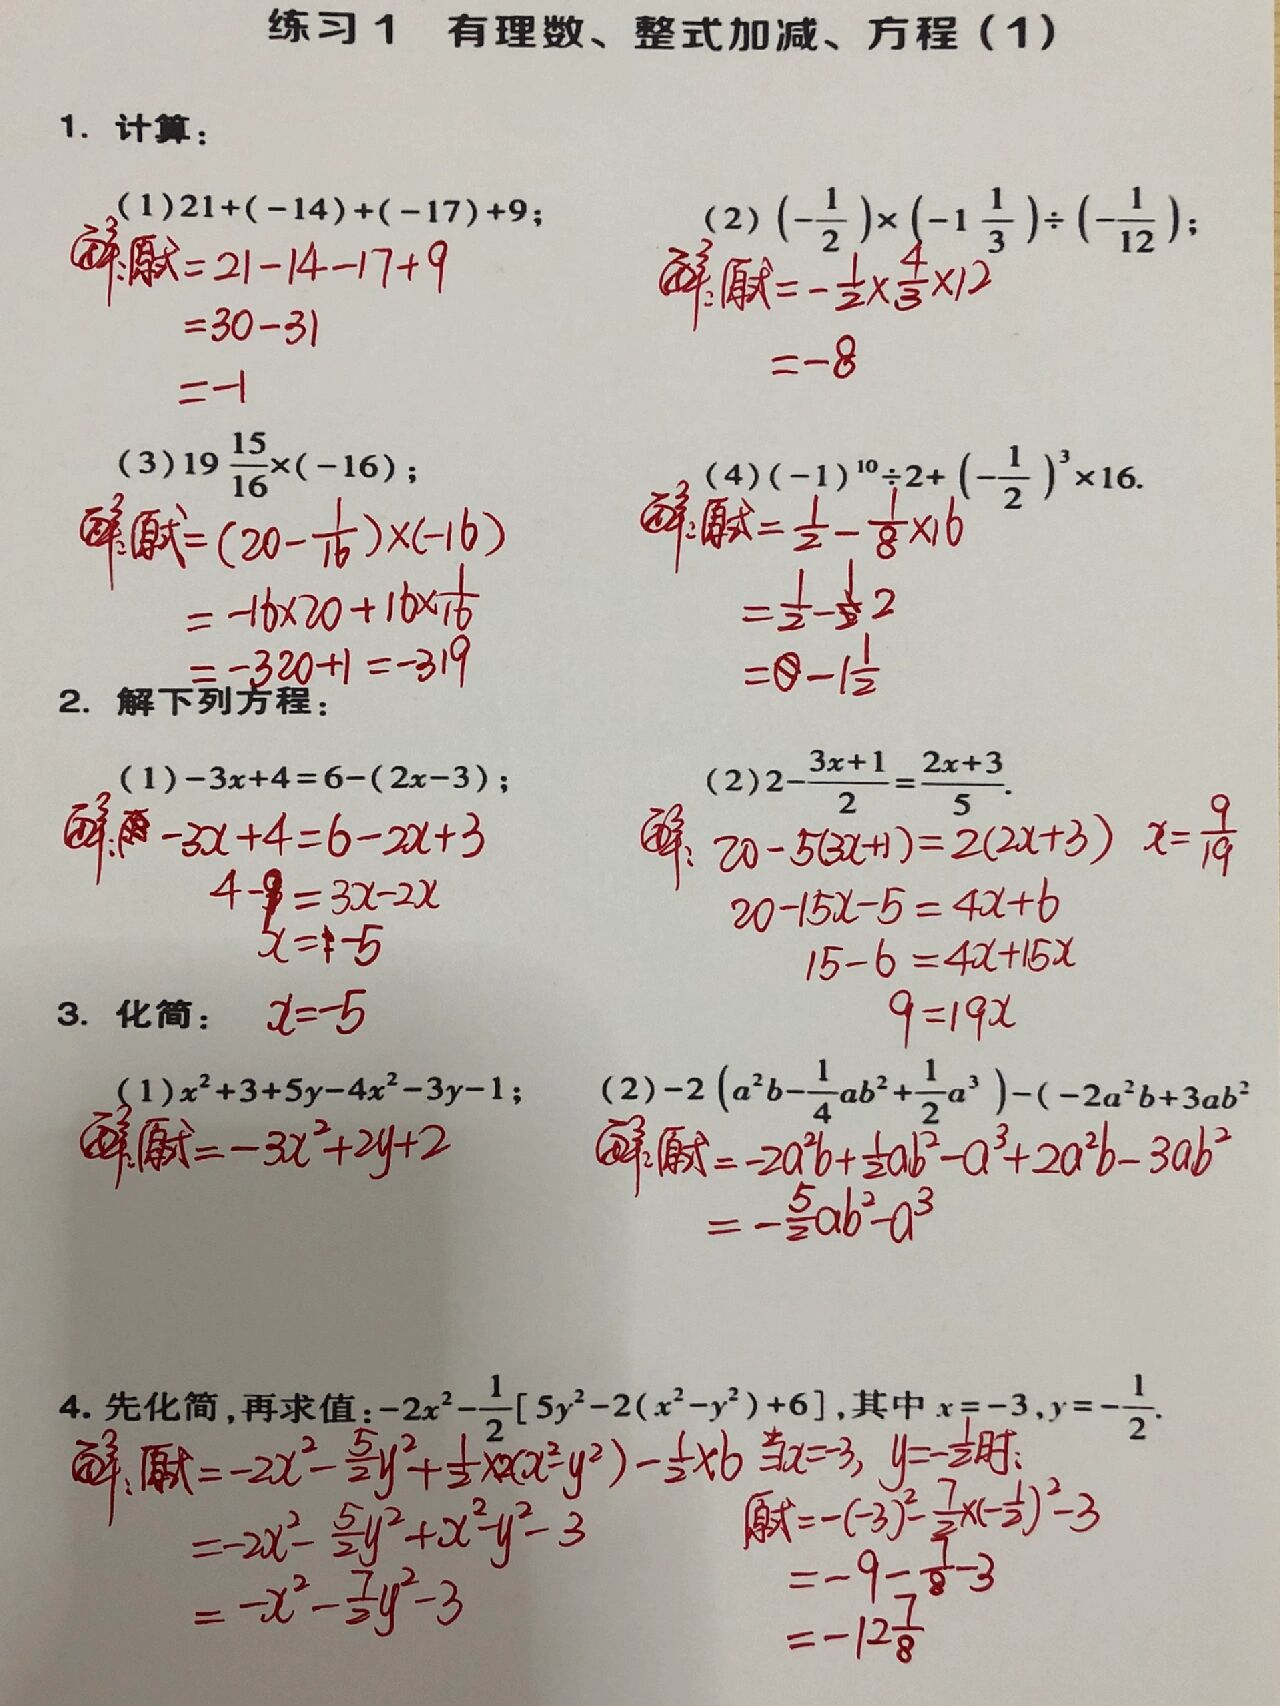 练习1 有理数、整式加减、方程(1)
1. 计算:
(1)21+(-14)+(-17)+9;
解:原式=21-14-17+9
=30-31
=-1
(2)(-1/2)×(-1 1/3)÷(-1/12);
解:原式=-1/2×4/3×12
=-8
(3)19 15/16×(-16);
解:原式=(20-1/16)×(-16)
=-16×20+16×1/16
=-320+1=-319
(4)(-1)¹⁰÷2+(-1/2)³×16.
解:原式=1/2-1/8×16
=1/2-2
=-1 1/2
2. 解下列方程:
(1)-3x+4=6-(2x-3);
解:-3x+4=6-2x+3
4-9=3x-2x
x=-5
x=-5
(2)2-(3x+1)/2=(2x+3)/5.
解:20-5(3x+1)=2(2x+3) x=9/19
20-15x-5=4x+6
15-6=4x+15x
9=19x
3. 化简:
(1)x²+3+5y-4x²-3y-1;
解:原式=-3x²+2y+2
(2)-2(a²b-1/4ab²+1/2a³)-(-2a²b+3ab²
解:原式=-2a²b+1/2ab²-a³+2a²b-3ab²
=-5/2ab²-a³
4. 先化简,再求值:-2x²-1/2[5y²-2(x²-y²)+6],其中x=-3,y=-1/2.
解:原式=-2x²-5/2y²+1/2×2(x²-y²)-1/2×6
=-2x²-5/2y²+x²-y²-3
=-x²-7/2y²-3
当x=-3,y=-1/2时:
原式=-(-3)²-7/2×(-1/2)²-3
=-9-7/8-3
=-12 7/8